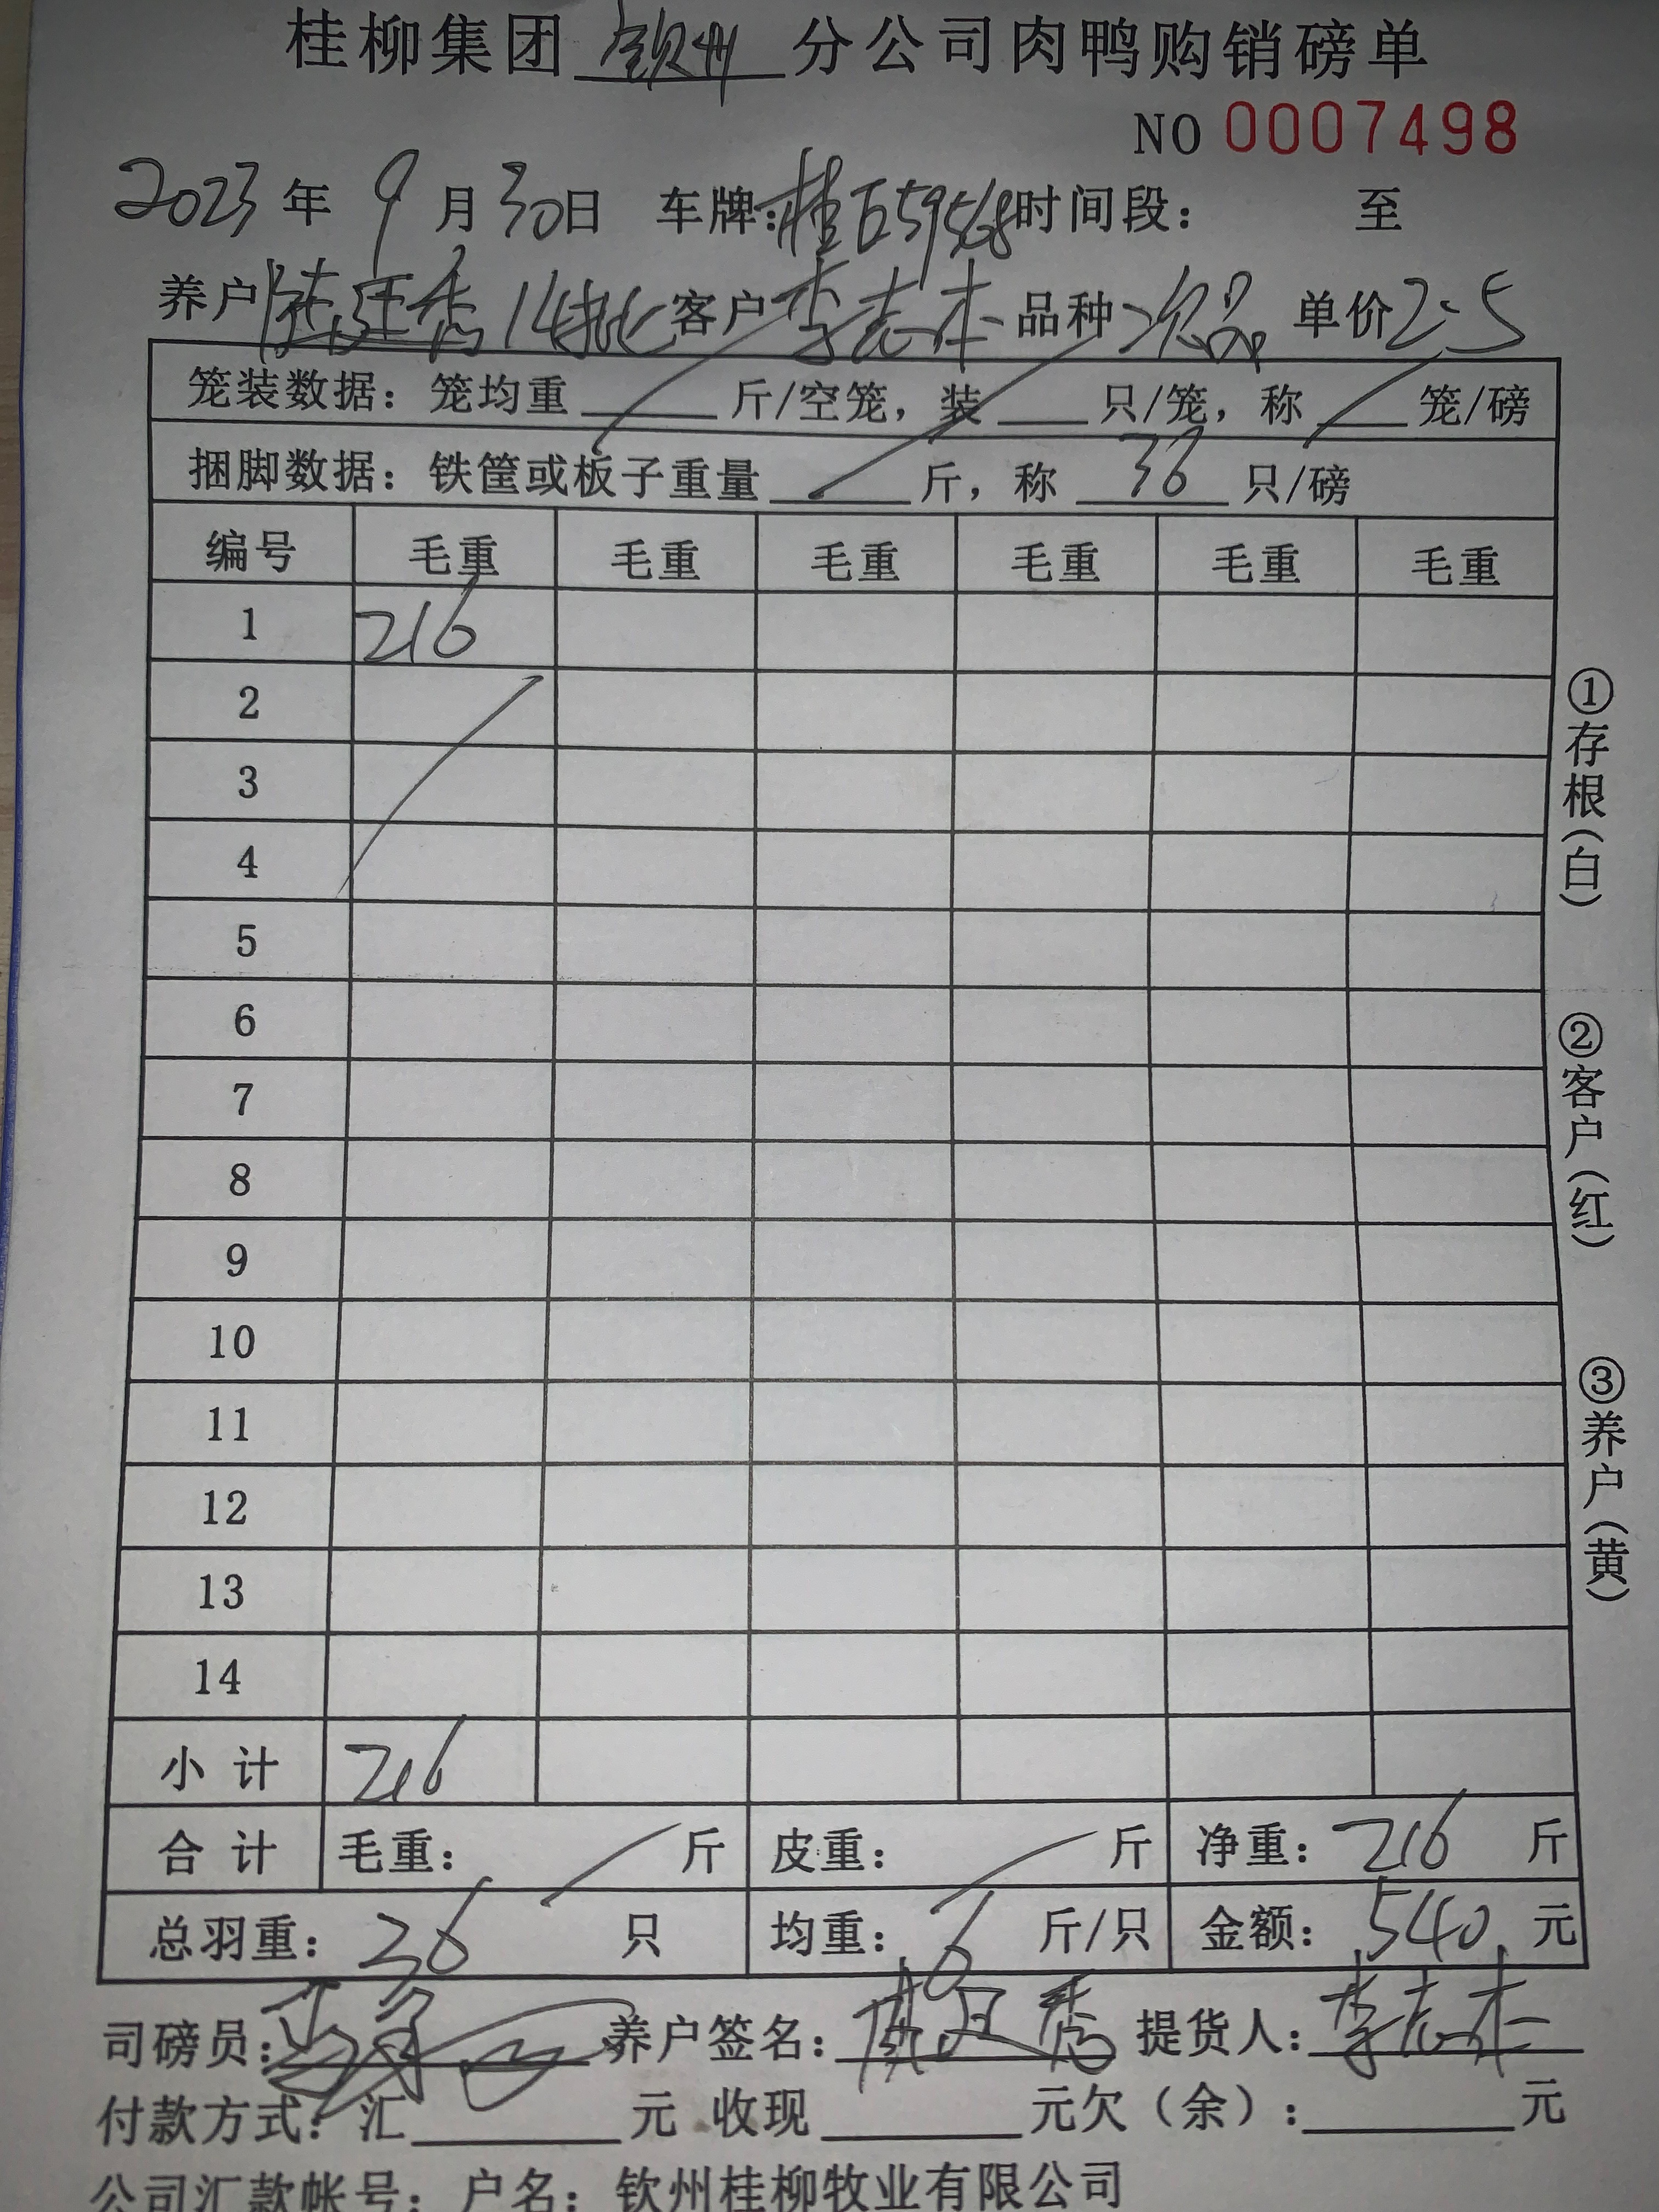 桂柳集团 钦州 分公司肉鸭购销磅单
NO 0007498
2023 年 9 月 30 日 车牌: 桂 59568 时间段: 至
养户 廷秀 14批 客户 李志本 品种 次品 单价 2.5
笼装数据: 笼均重 斤/空笼, 装 只/笼, 称 笼/磅
捆脚数据: 铁筐或板子重量 斤, 称 36 只/磅
编号 毛重 毛重 毛重 毛重 毛重 毛重
1 216
2
3
4
5
6
7
8
9
10
11
12
13
14
小计 216
合计 毛重: 斤 皮重: 斤 净重: 216 斤
总羽重: 36 只 均重: 6 斤/只 金额: 540 元
司磅员: 养户签名: 提货人: 李志本
付款方式: 汇 元 收现 元欠（余）: 元
公司汇款帐号: 户名: 钦州桂柳牧业有限公司
①存根(白)
②客户(红)
③养户(黄)